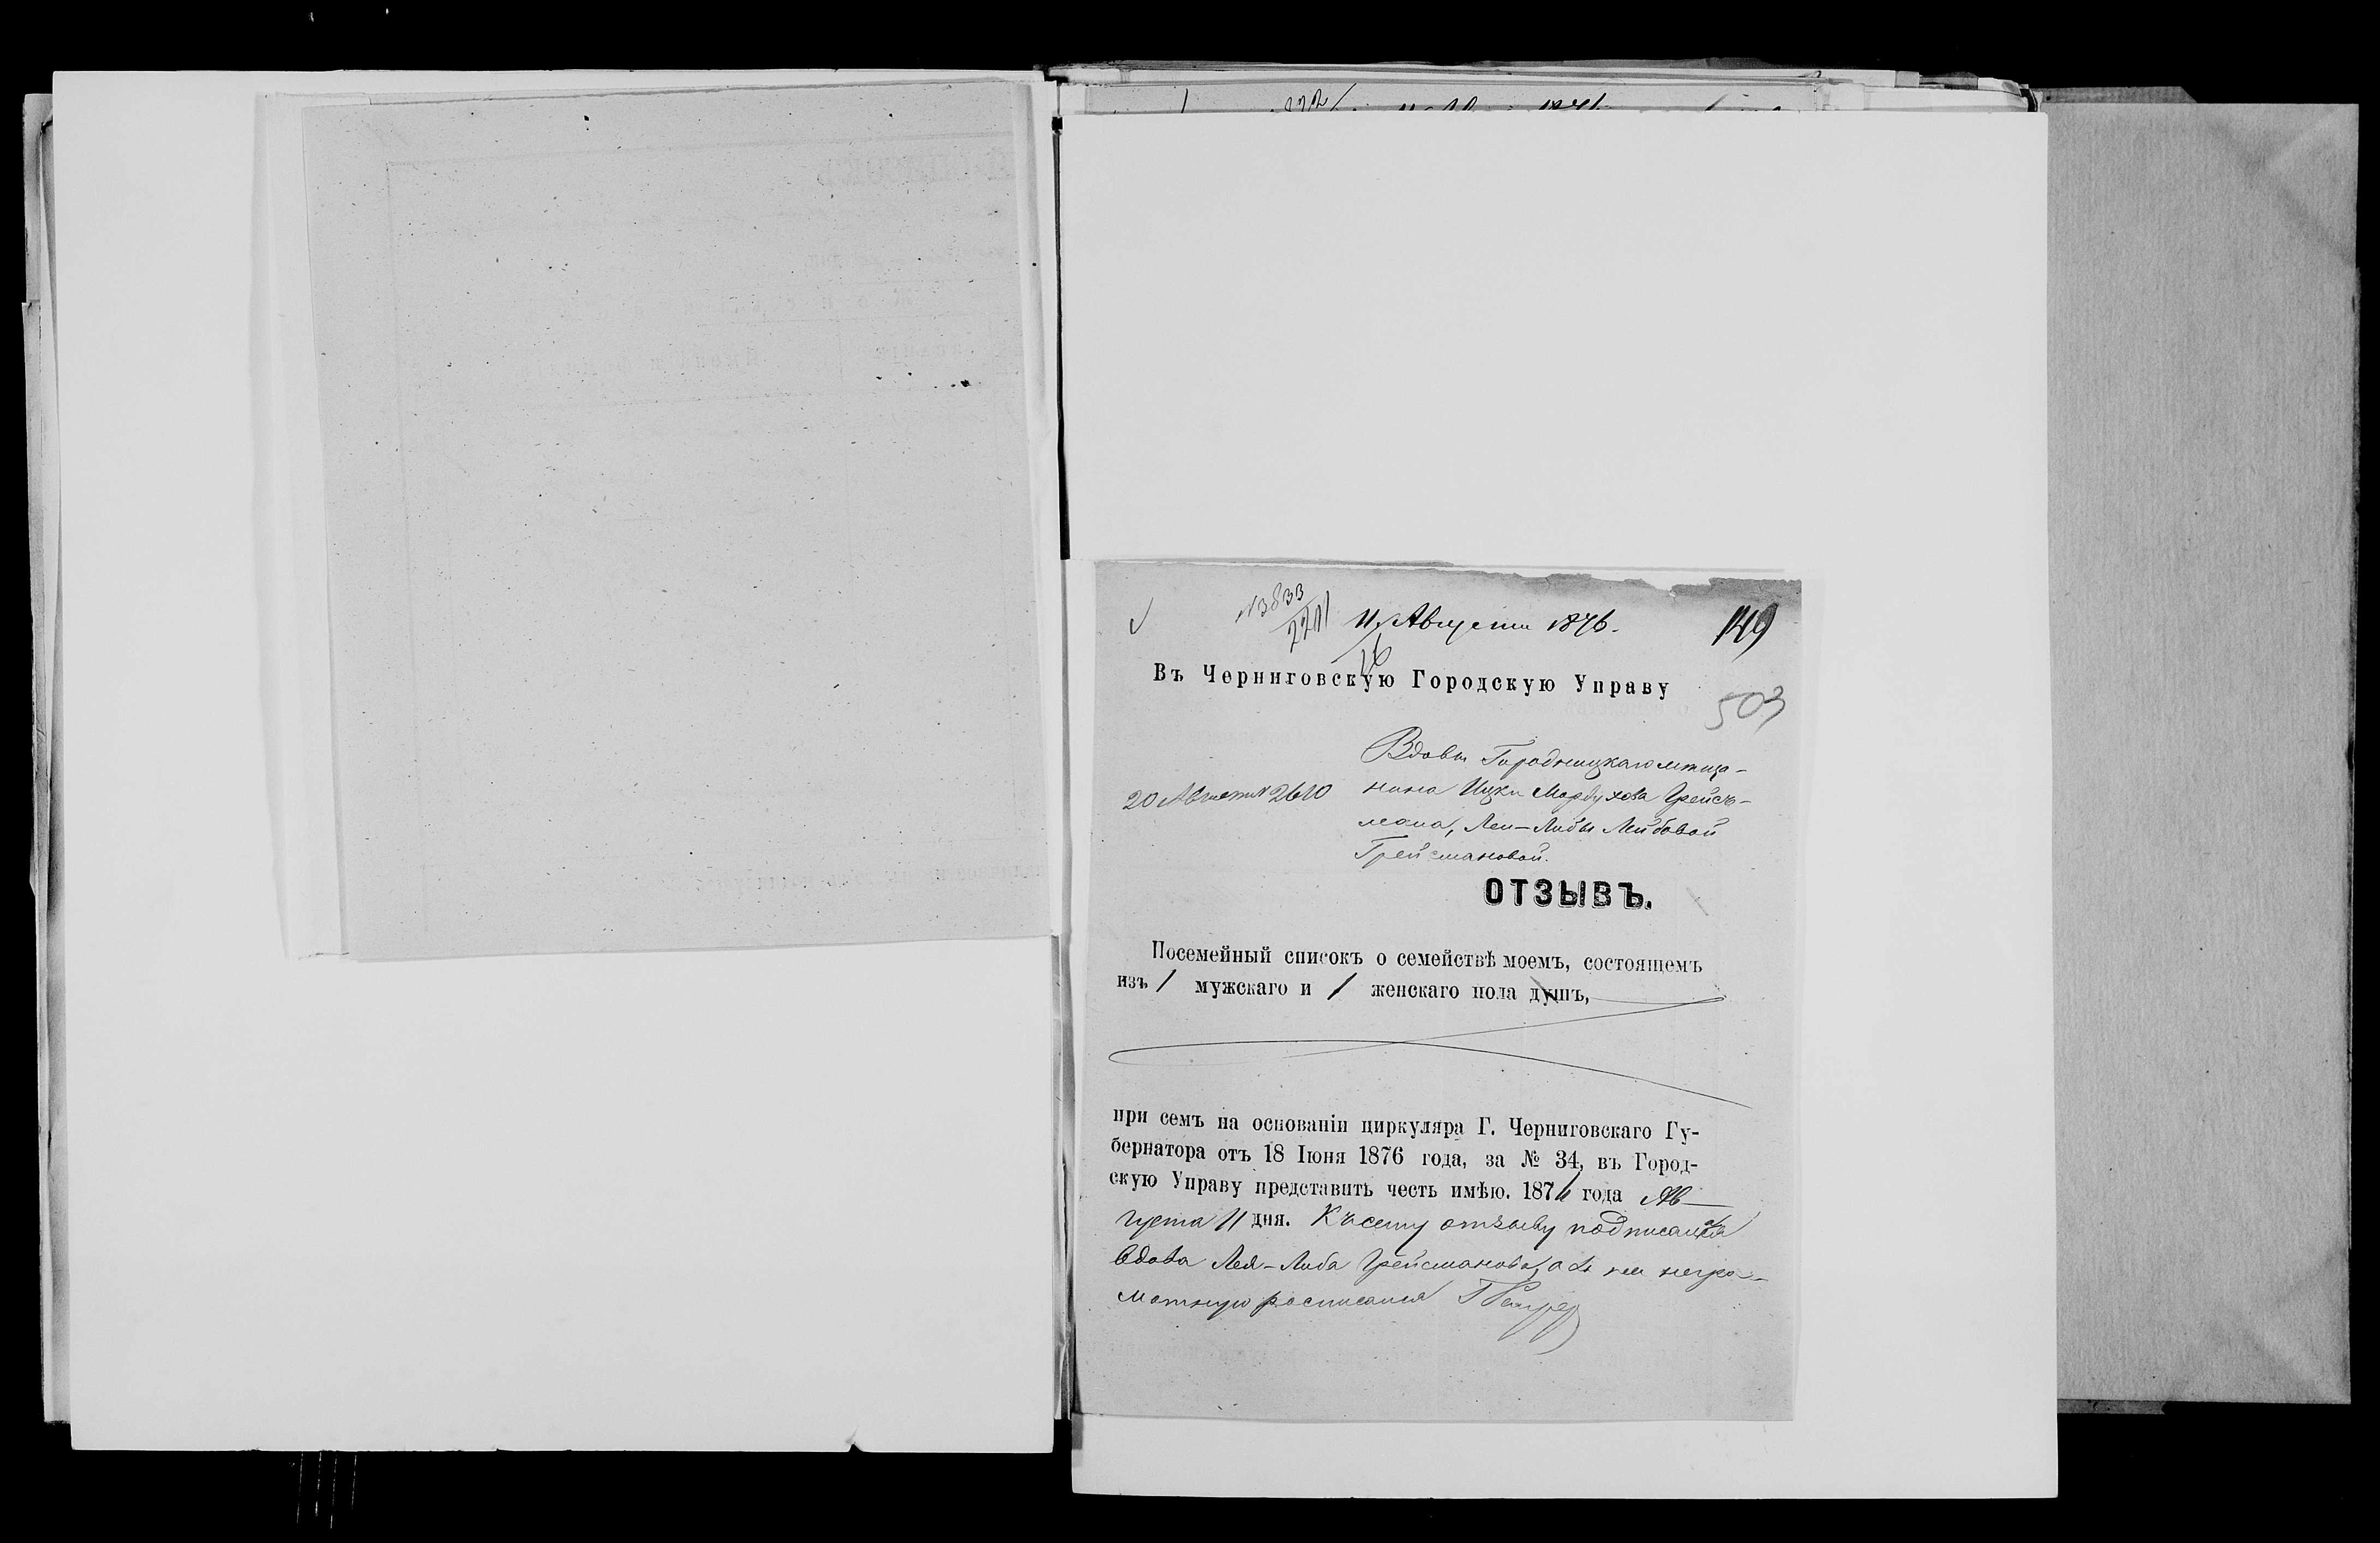 №3833
2211
11 Августа 1876.
16
149
Въ Черниговскую Городскую Управу
503
Вдовы Городницкаго мѣща-
20 Августа №2610
нина Ицки Мордухова Грейс-
мана, Леи-Либы Лейбовой
Грейсмановой.
ОТЗЫВЪ.
Посемейный списокъ о семействѣ моемъ, состоящемъ
изъ 1 мужскаго и 1 женскаго пола душъ,
при семъ на основаніи циркуляра Г. Черниговскаго Гу-
бернатора отъ 18 Іюня 1876 года, за № 34, въ Город-
скую Управу представить честь имѣю. 1876 года Ав-
густа 11 дня. Къ сему отзыву
вдова Лея-Либа Грейсманова, а за нея негра-
мотную росписался